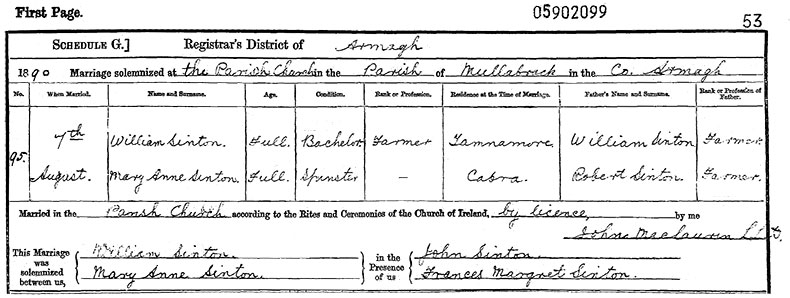 First Page.
05902099
53
SCHEDULE G.] Registrar's District of Armagh
1890 Marriage solemnized at the Parish Church in the Parish of Mullabrack in the Co. Armagh
No. When Married. Name and Surname. Age. Condition. Rank or Profession. Residence at the Time of Marriage. Father's Name and Surname. Rank or Profession of Father.
95. 7th August. William Sinton. Full. Bachelor Farmer Tamnamore. William Sinton Farmer.
Mary Anne Sinton. Full. Spinster — Cabra. Robert Sinton. Farmer.
Married in the Parish Church according to the Rites and Ceremonies of the Church of Ireland, by licence, by me
John Maclaurin
This Marriage was solemnized between us, William Sinton. Mary Anne Sinton.
in the Presence of us John Sinton. Frances Margret Sinton.